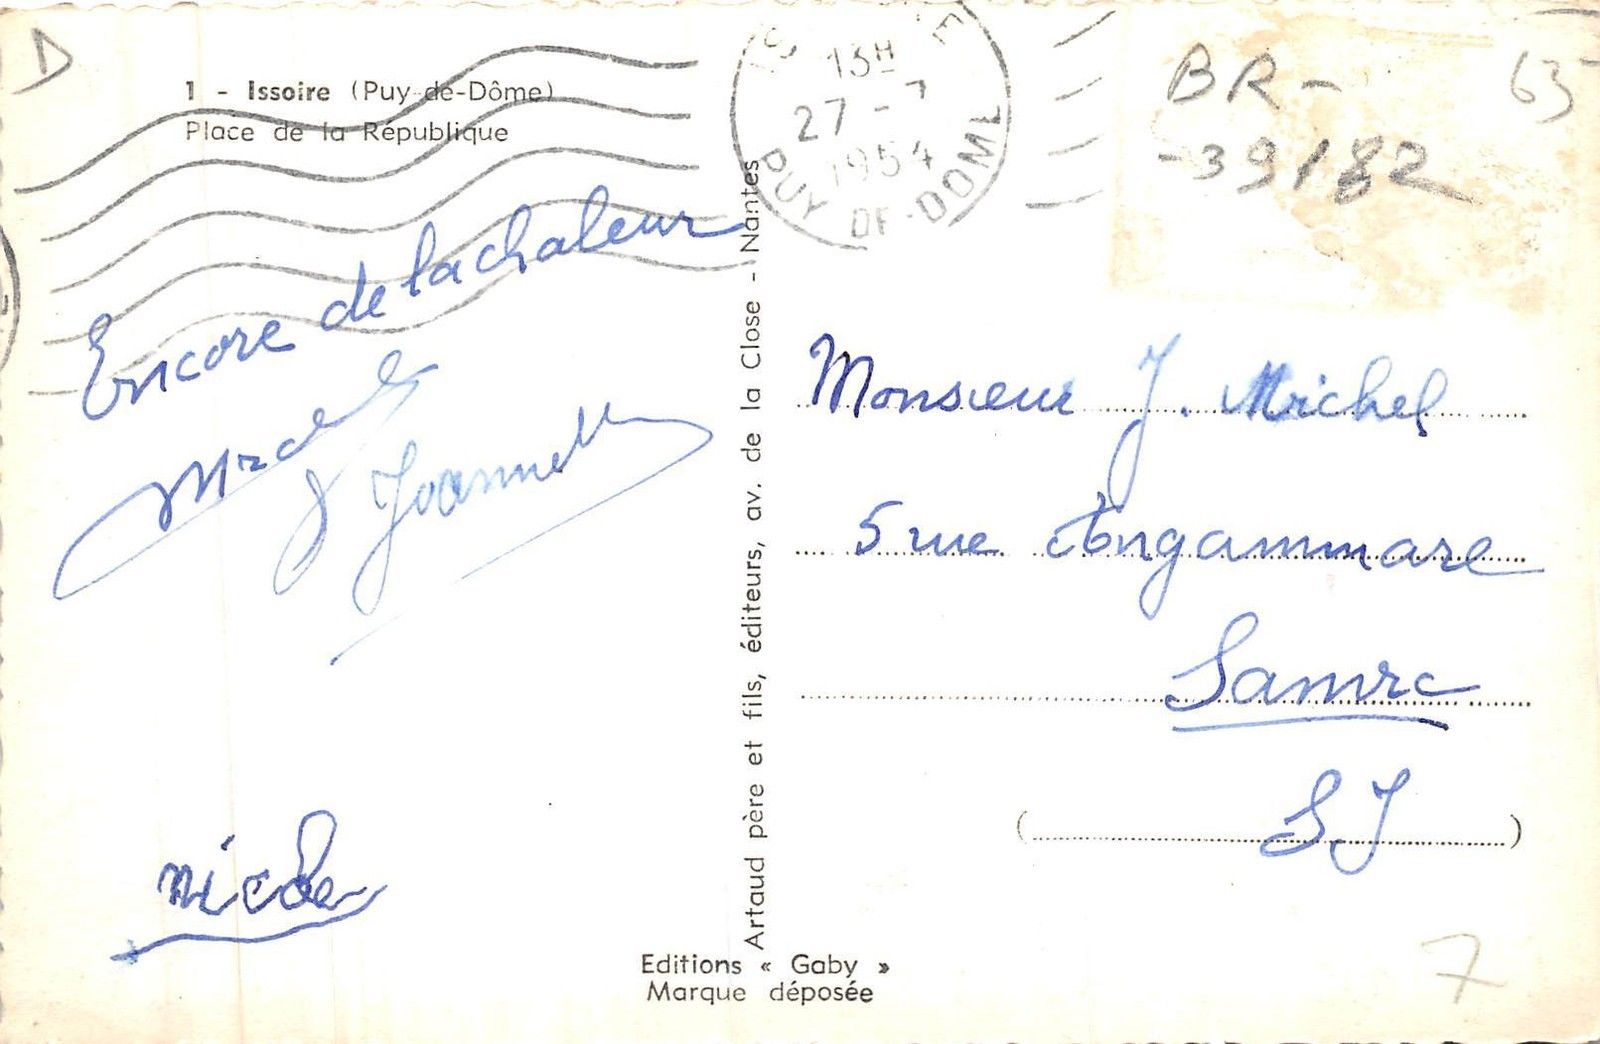 D
1 - Issoire (Puy-de-Dôme)
Place de la République
13H
27 - 7
1954
PUY-DE-DOME
BR - 63
- 39182
Encore de la chaleur
Joannell
Nicole
Monsieur J. Michel
5 rue
S J
Artaud père et fils, éditeurs, av. de la Close - Nantes
Editions « Gaby »
Marque déposée
7